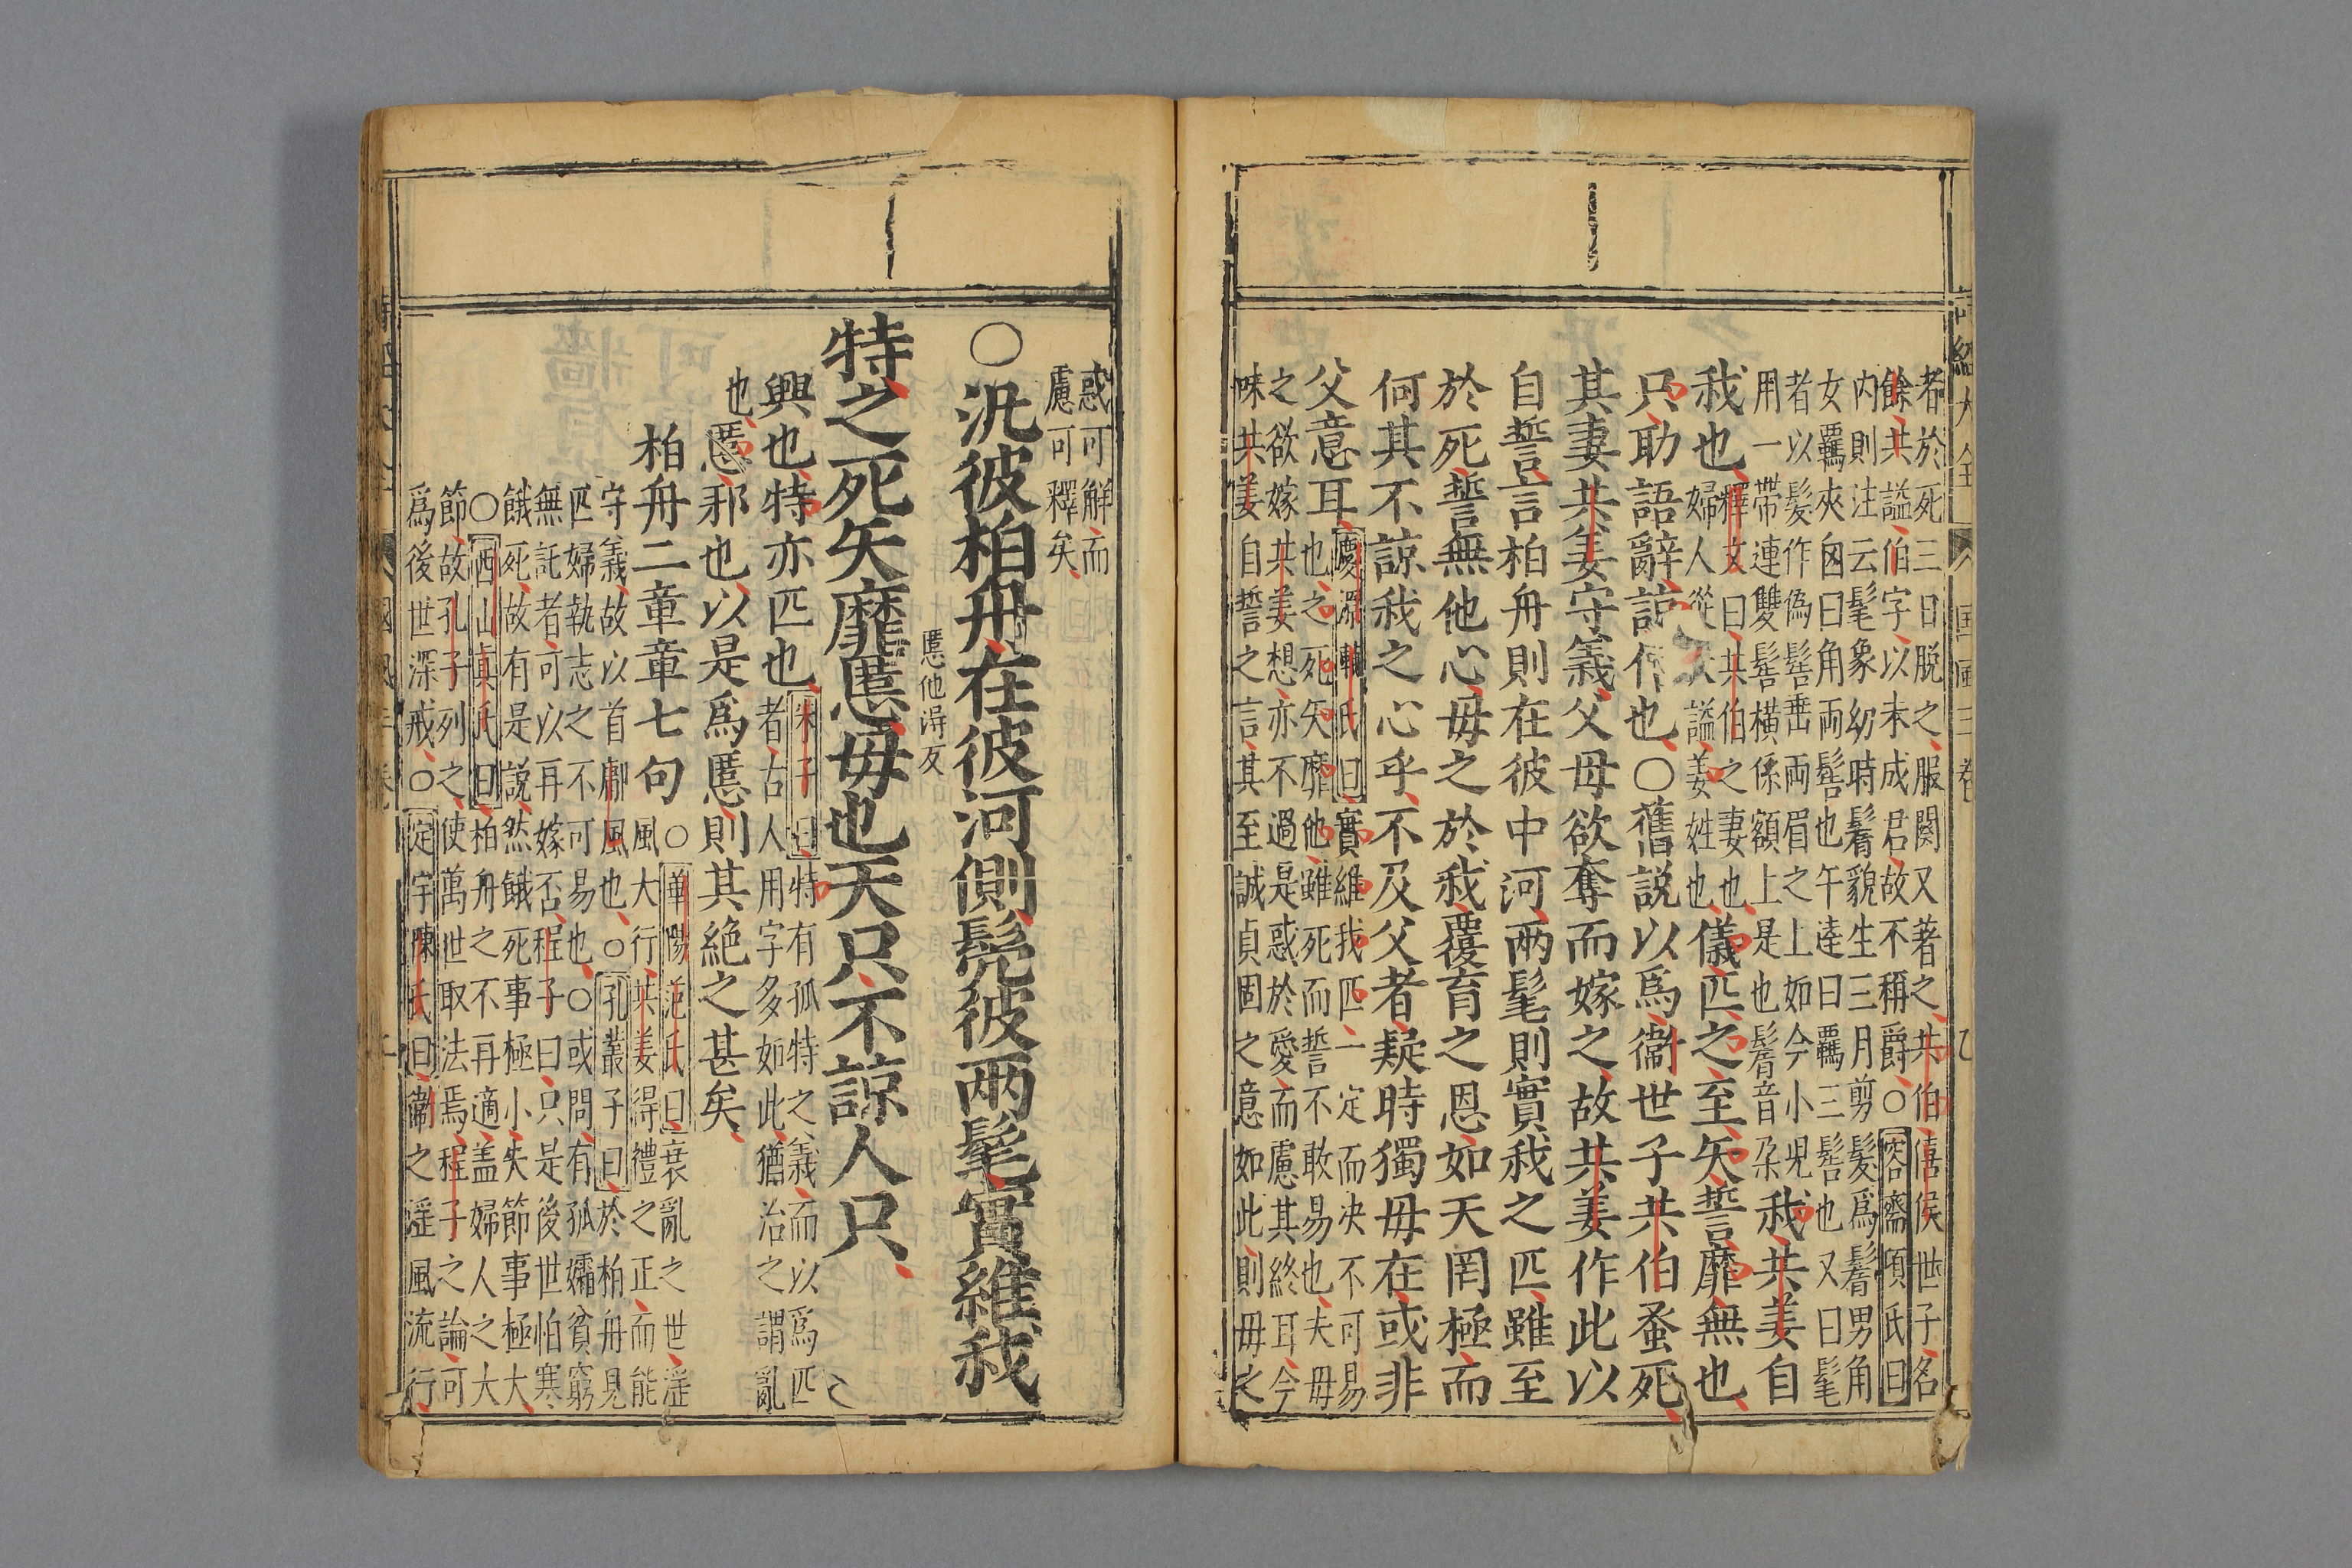 者於死三日脫之服闋又著之共伯僖侯世子名
餘共謚伯字以未成君故不稱爵○容齋項氏曰
内則注云髦象幼時鬌貌生三月剪髮爲鬌男角
女羈夾囟曰角兩髻也午達曰羈三髻也又曰髦
者以髮作偽髻垂兩眉之上如今小兒
用一帶連雙髻橫係額上是也鬌音朶
我共姜自
我也
釋文曰共伯之妻也
婦人從謚姜姓也
儀匹之至矢誓靡無也
只助語辭諒信也○舊説以爲衞世子共伯蚤死
其妻共姜守義父母欲奪而嫁之故共姜作此以
自誓言柏舟則在彼中河兩髦則實我之匹雖至
於死誓無他心毋之於我覆育之恩如天罔極而
何其不諒我之心乎不及父者疑時獨毋在或非
父意耳
慶源輔氏曰實維我匹一定而决不可易
也之死矢靡他雖死而誓不敢易也夫毋
之欲嫁共姜想亦不過是惑於愛而慮其終耳今
味共姜自誓之言其至誠貞固之意如此則毋之
惑可解而
慮可釋矣
○汎彼柏舟在彼河側髧彼兩髦實維我
慝他淂反
特之死矢靡慝毋也天只不諒人只
興也特亦匹也
朱子曰特有孤特之義而以爲匹
者古人用字多如此猶治之謂亂
也
慝邪也以是爲慝則其絶之甚矣
柏舟二章章七句○
華陽范氏曰衰亂之世淫
風大行共姜得禮之正而能
守義故以首鄘風也○孔叢子曰於柏舟見
匹婦執志之不可易也○或問有孤孀貧窮
無託者可以再嫁否程子曰只是後世怕寒
餓死故有是説然餓死事極小失節事極大
○西山真氏曰柏舟之不再適盖婦人之大
節故孔子列之使萬世取法焉程子之論可
爲後世深戒○定宇陳氏曰衞之淫風流行